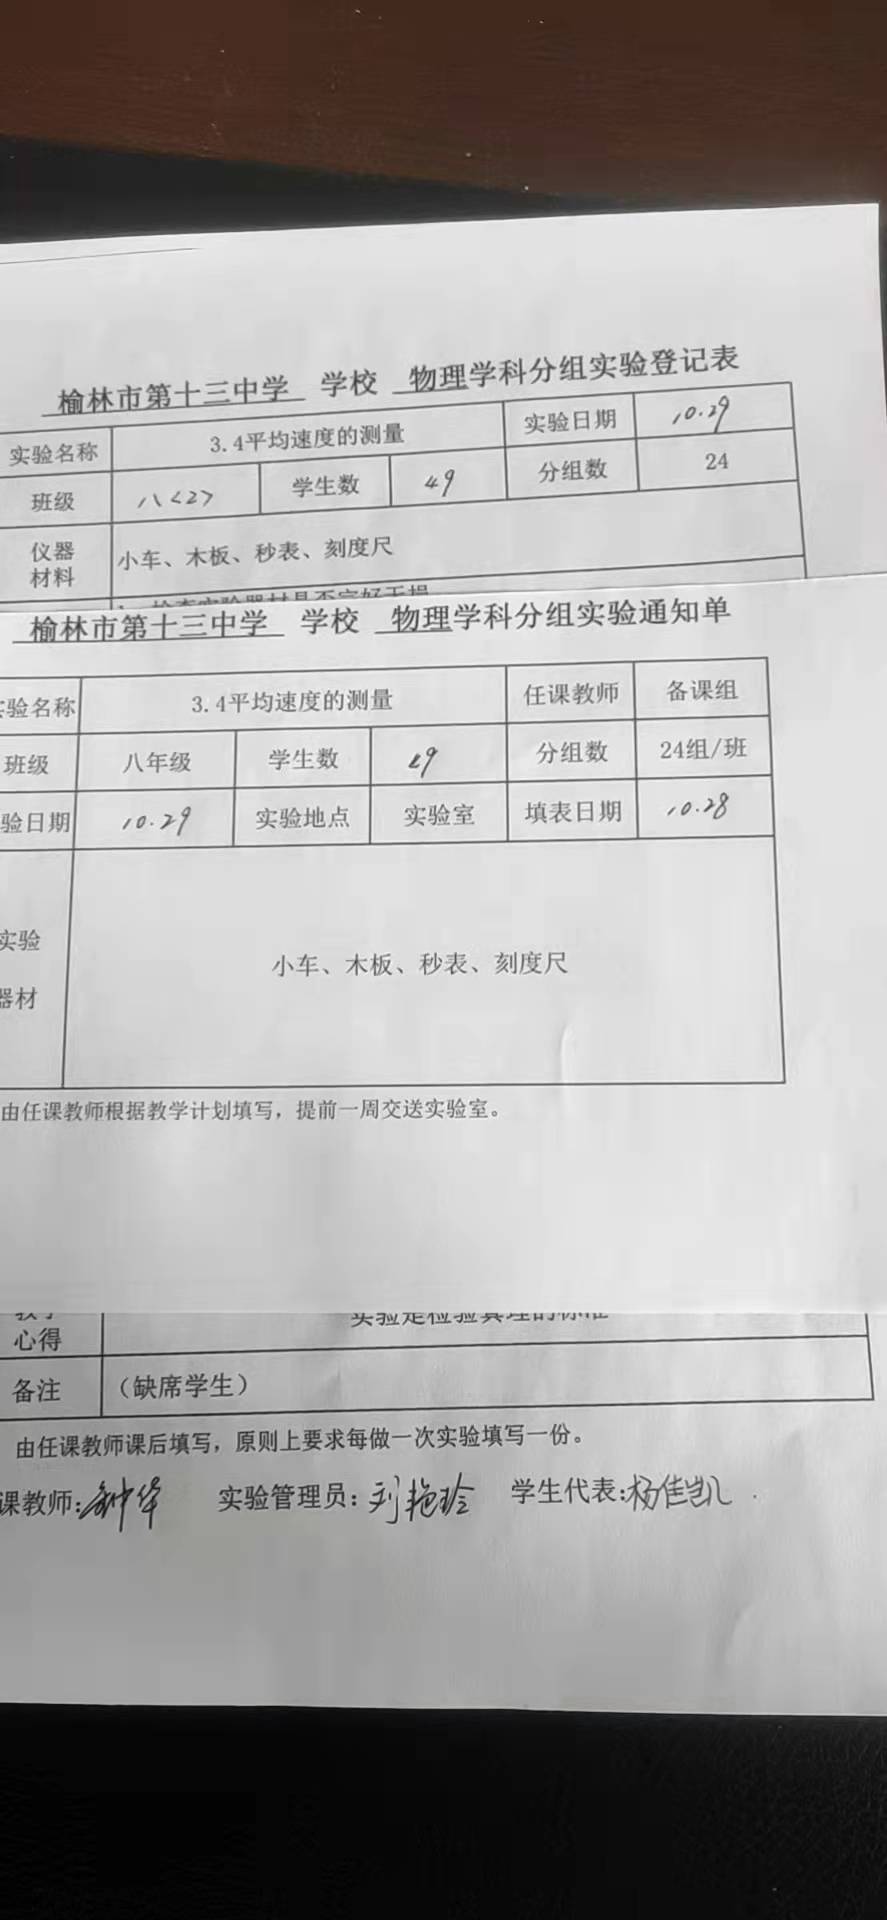 榆林市第十三中学 学校 物理学科分组实验登记表
实验名称 3.4平均速度的测量 实验日期 10.29
班级 八<2> 学生数 49 分组数 24
仪器材料 小车、木板、秒表、刻度尺
1、检查实验器材是否完好无损
榆林市第十三中学 学校 物理学科分组实验通知单
实验名称 3.4平均速度的测量 任课教师 备课组
班级 八年级 学生数 49 分组数 24组/班
验日期 10.29 实验地点 实验室 填表日期 10.28
实验器材 小车、木板、秒表、刻度尺
由任课教师根据教学计划填写，提前一周交送实验室。
心得 实验是检验真理的标准
备注 （缺席学生）
由任课教师课后填写，原则上要求每做一次实验填写一份。
课教师: 实验管理员: 刘艳玲 学生代表: 杨佳凯